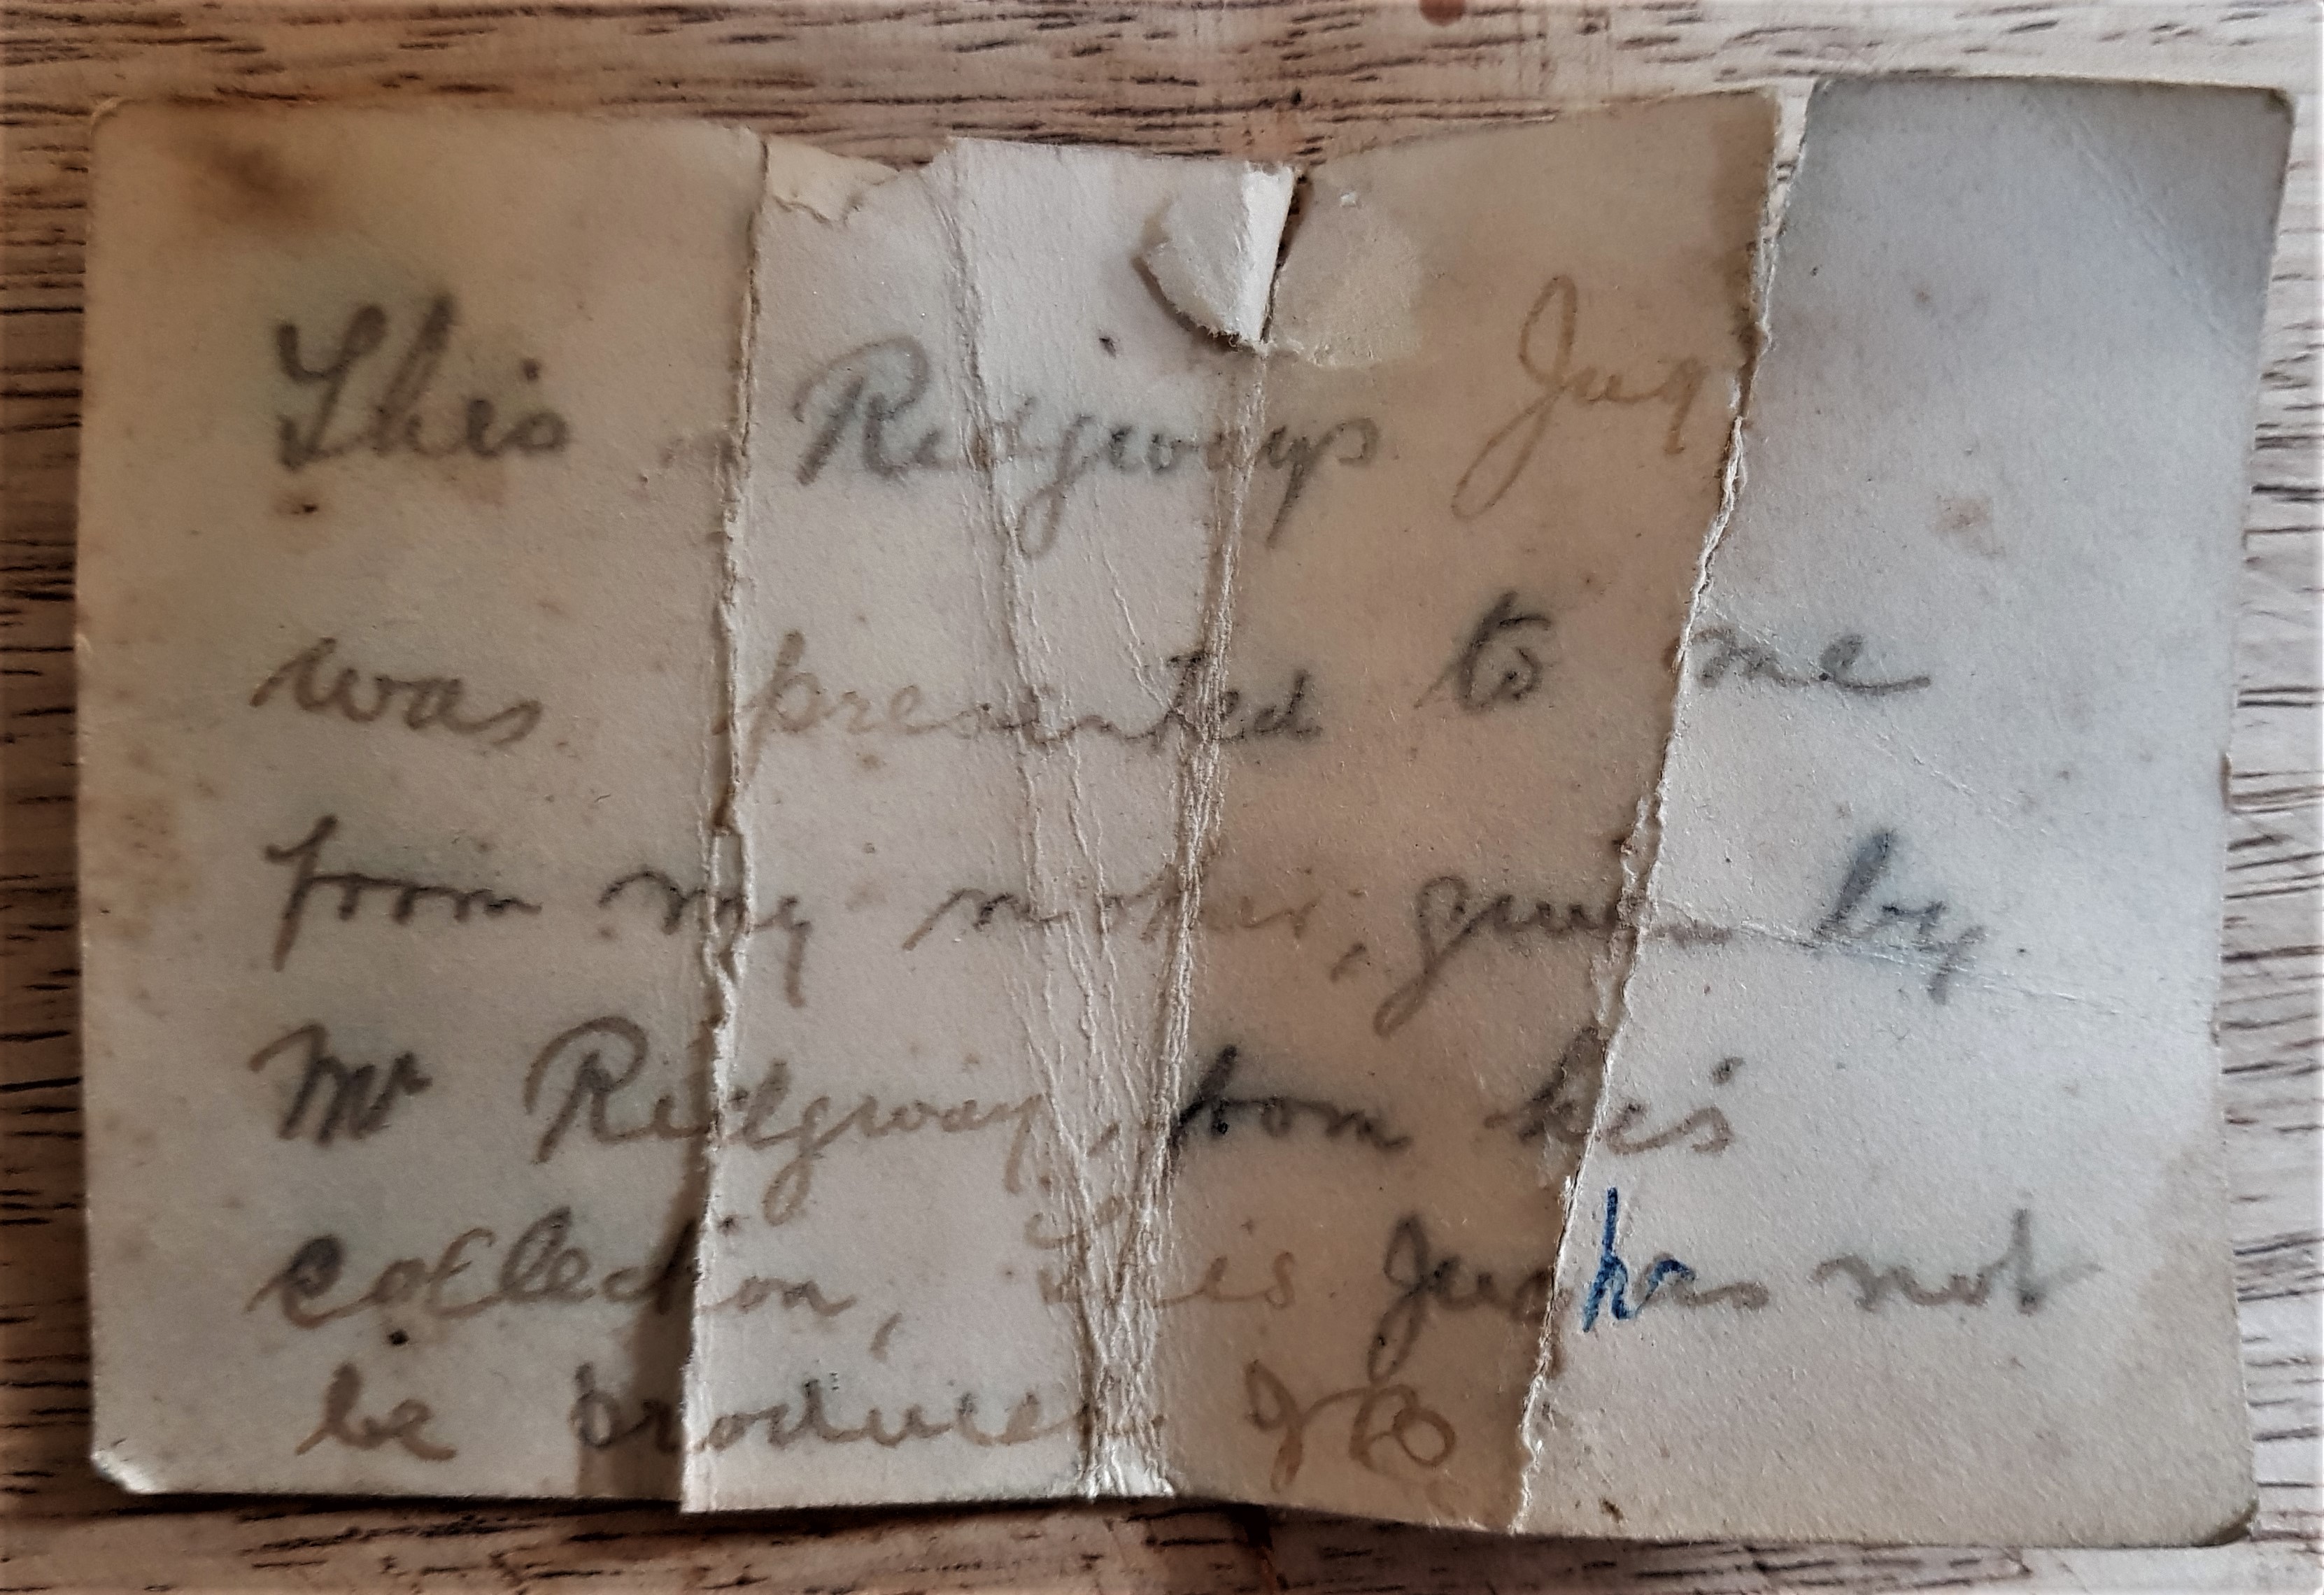 This Ridgways Jug
was presented to me
from my mother, given by
Mr Ridgway, from his
collection, this Jug has not
be produced